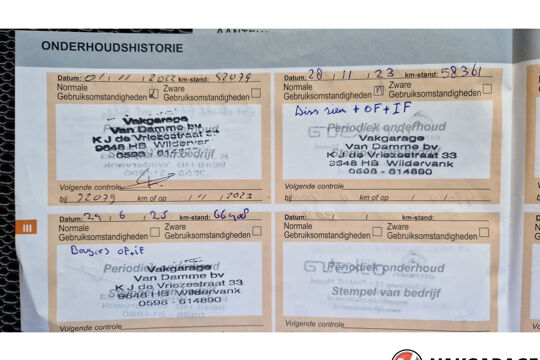 ONDERHOUDSHISTORIE
Datum: 01 / 11 / 2022 km-stand: 52079
Normale Gebruiksomstandigheden
Zware Gebruiksomstandigheden
Vakgarage
Van Damme bv
K J de Vriezestraat 33
9648 HB Wildervank
0598 - 614890
Volgende controle
bij 72079 km of op / 11 / 2023
Datum: 28 / 11 / 23 km-stand: 58361
Normale Gebruiksomstandigheden
Zware Gebruiksomstandigheden
+ OF + IF
Periodiek onderhoud
Vakgarage
Van Damme bv
K J de Vriezestraat 33
9648 HB Wildervank
0598 - 614890
Volgende controle
bij / / km of op / /
III
Datum: 29 / 6 / 25 km-stand: 66908
Normale Gebruiksomstandigheden
Zware Gebruiksomstandigheden
Bougies OF, IF
Periodiek onderhoud
Vakgarage
Van Damme bv
K J de Vriezestraat 33
9648 HB Wildervank
0598 - 614890
Volgende controle
Datum: / / km-stand:
Normale Gebruiksomstandigheden
Zware Gebruiksomstandigheden
Periodiek onderhoud
Stempel van bedrijf
Volgende controle
VAKGARAGE